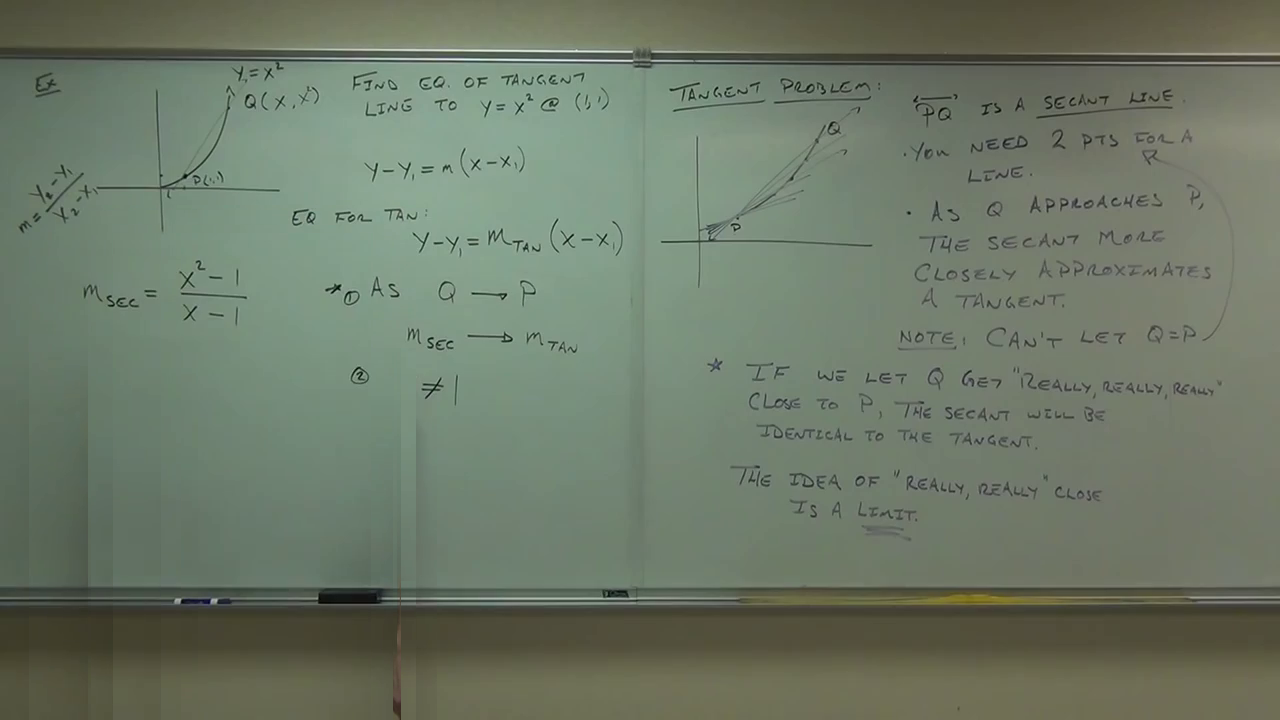 Ex
Y₁=X²
Q(X,X²)
P(1,1)
m = Y₂-Y₁ / X₂-X₁
FIND EQ. OF TANGENT
LINE TO Y=X² @ (1,1)
Y-Y₁=m(X-X₁)
EQ FOR TAN:
Y-Y₁=m_TAN(X-X₁)
m_SEC = X²-1 / X-1
* ① AS Q → P
m_SEC → m_TAN
② ≠1
TANGENT PROBLEM:
Q
P
"PQ" IS A SECANT LINE.
· YOU NEED 2 PTS FOR A
LINE.
· AS Q APPROACHES P,
THE SECANT MORE
CLOSELY APPROXIMATES
A TANGENT.
NOTE: CAN'T LET Q=P
* IF WE LET Q GET "REALLY, REALLY, REALLY"
CLOSE TO P, THE SECANT WILL BE
IDENTICAL TO THE TANGENT.
THE IDEA OF "REALLY, REALLY" CLOSE
IS A LIMIT.